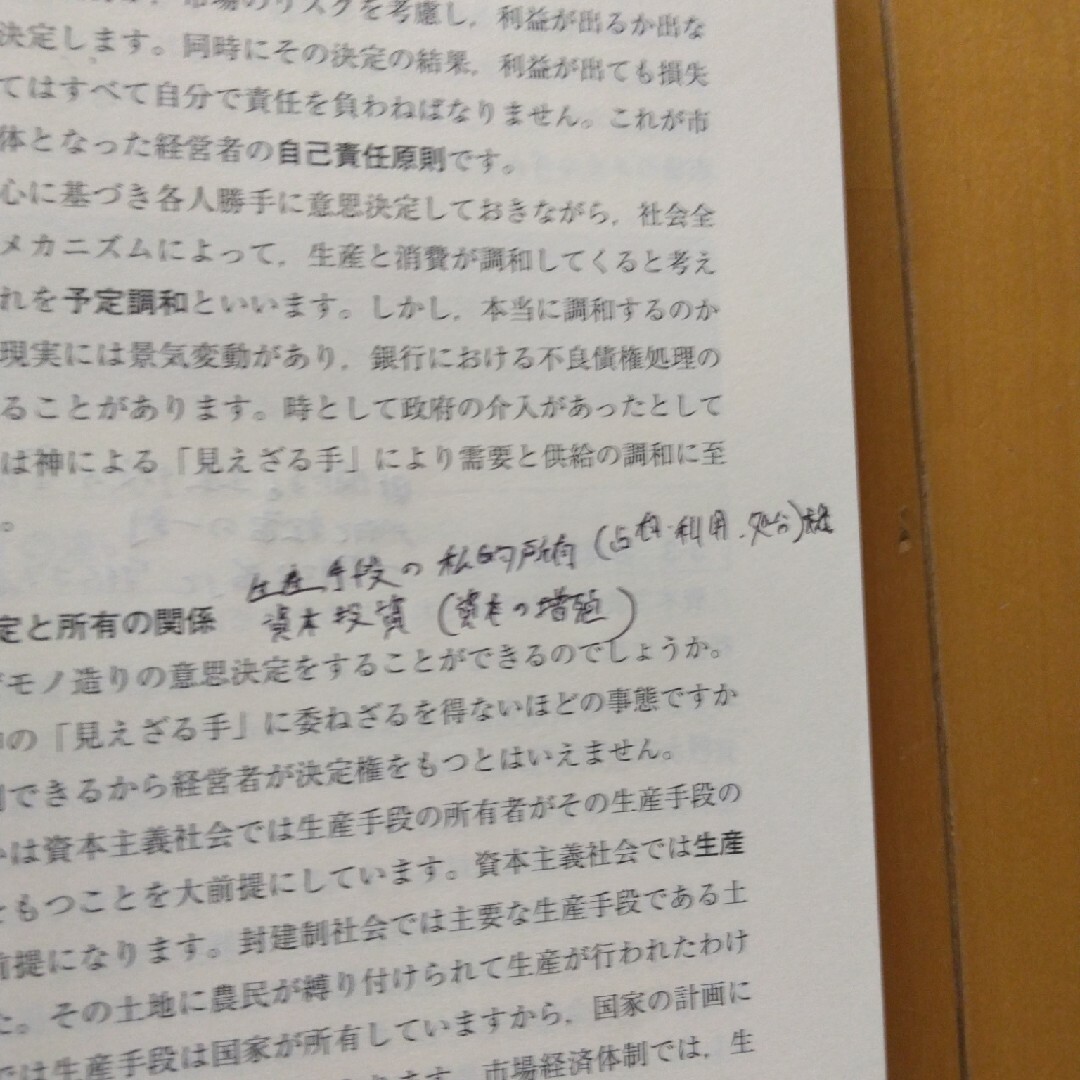 市場のリスクを考慮し，利益が出るか出な
決定します。同時にその決定の結果，利益が出ても損失
てはすべて自分で責任を負わねばなりません。これが市
体となった経営者の自己責任原則です。
心に基づき各人勝手に意思決定しておきながら，社会全
メカニズムによって，生産と消費が調和してくると考え
れを予定調和といいます。しかし，本当に調和するのか
現実には景気変動があり，銀行における不良債権処理の
ることがあります。時として政府の介入があったとして
は神による「見えざる手」により需要と供給の調和に至
。
生産手段の私的所有(占有・利用・処分)権
定と所有の関係 資本投資(資本の増殖)
モノ造りの意思決定をすることができるのでしょうか。
の「見えざる手」に委ねざるを得ないほどの事態ですか
できるから経営者が決定権をもつとはいえません。
は資本主義社会では生産手段の所有者がその生産手段の
をもつことを大前提にしています。資本主義社会では生産
前提になります。封建制社会では主要な生産手段である土
た。その土地に農民が縛り付けられて生産が行われたわけ
では生産手段は国家が所有していますから，国家の計画に
ます。市場経済体制では，生